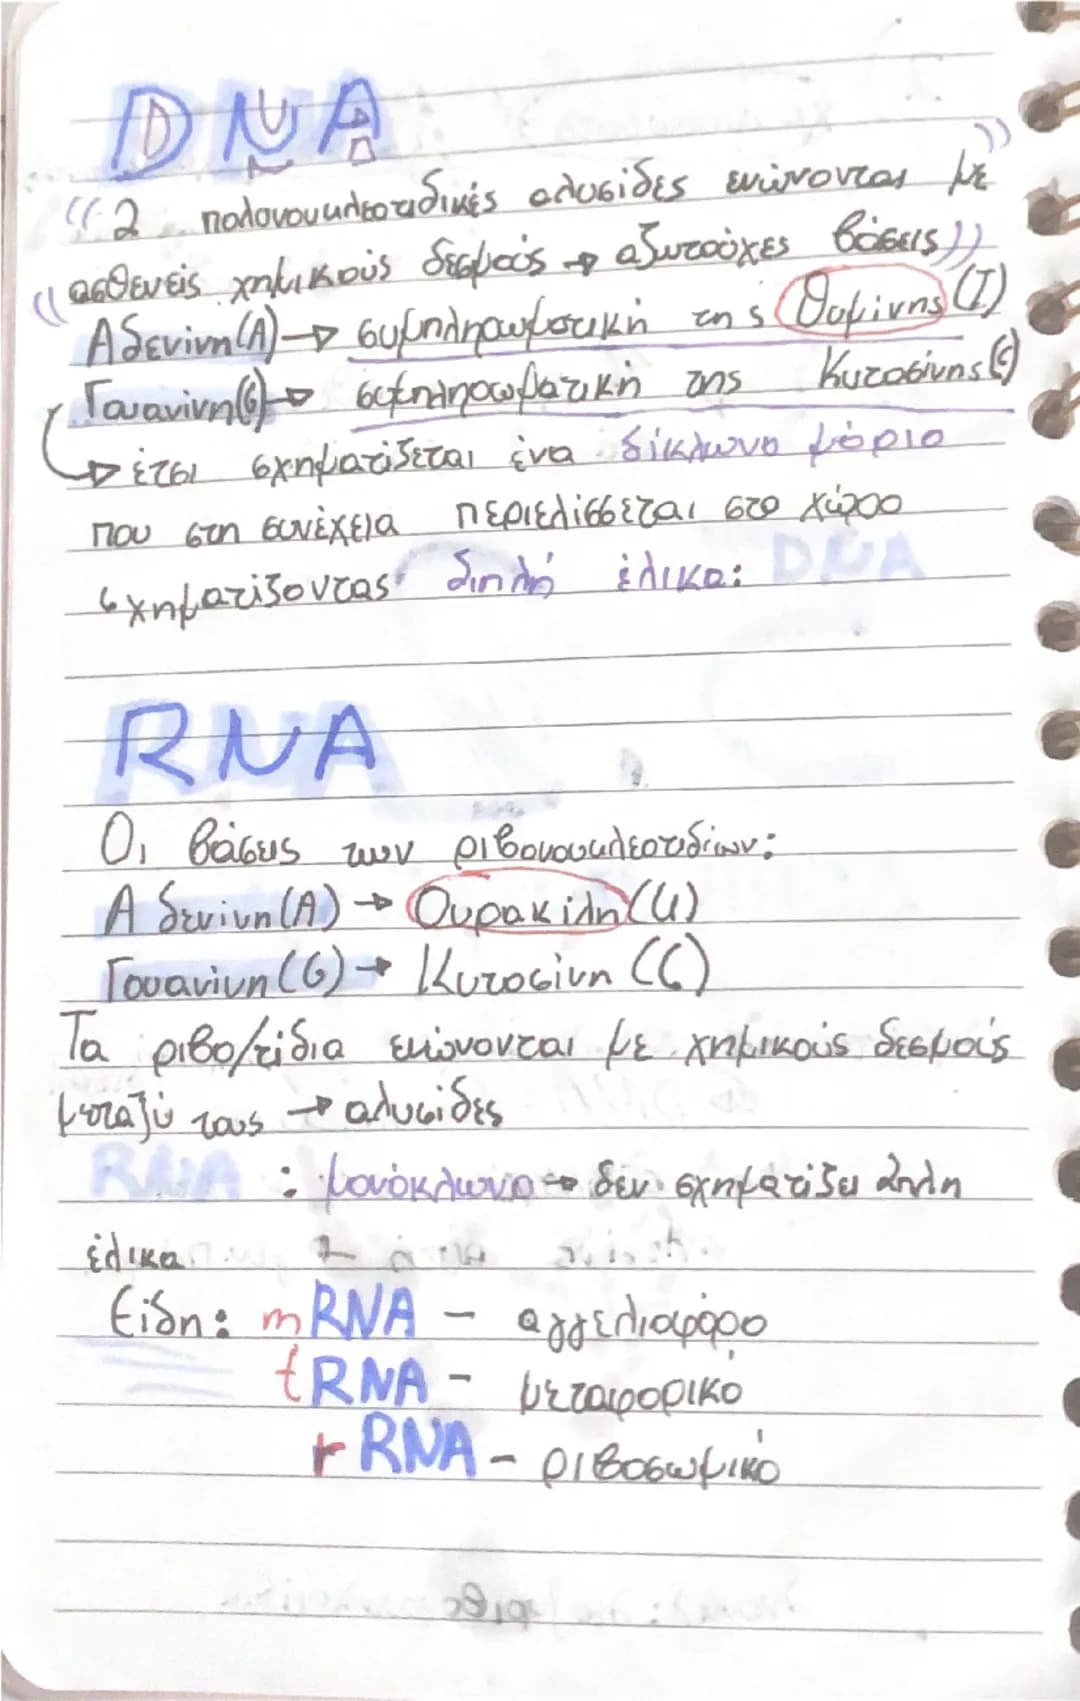 DNA
((2 πολονουκλεοτιδικές αλυσίδες ενώνονται με ))
(( ασθενείς χημικούς δεσμούς → αζωτούχες βάσεις ))
Αδενίνη(A) → συμπληρωματική της Θυμίνης (T)
Γουανίνη(G) → συμπληρωματική της Κυτοσίνης(C)
→ έτσι σχηματίζεται ένα δίκλωνο μόριο
που στη συνέχεια περιελίσσεται στο χώρο
σχηματίζοντας διπλή έλικα: DNA
RNA
Οι βάσεις των ριβονουκλεοτιδίων:
Αδενίνη(A) → Ουρακίλη(U)
Γουανίνη(G) → Κυτοσίνη (C)
Τα ριβο/τίδια ενώνονται με χημικούς δεσμούς
μεταξύ τους → αλυσίδες
RNA : μονόκλωνο → δεν σχηματίζει διπλη
έλικα
Είδη: mRNA - αγγελιαφόρο
tRNA - μεταφορικό
rRNA - ριβοσωμικό